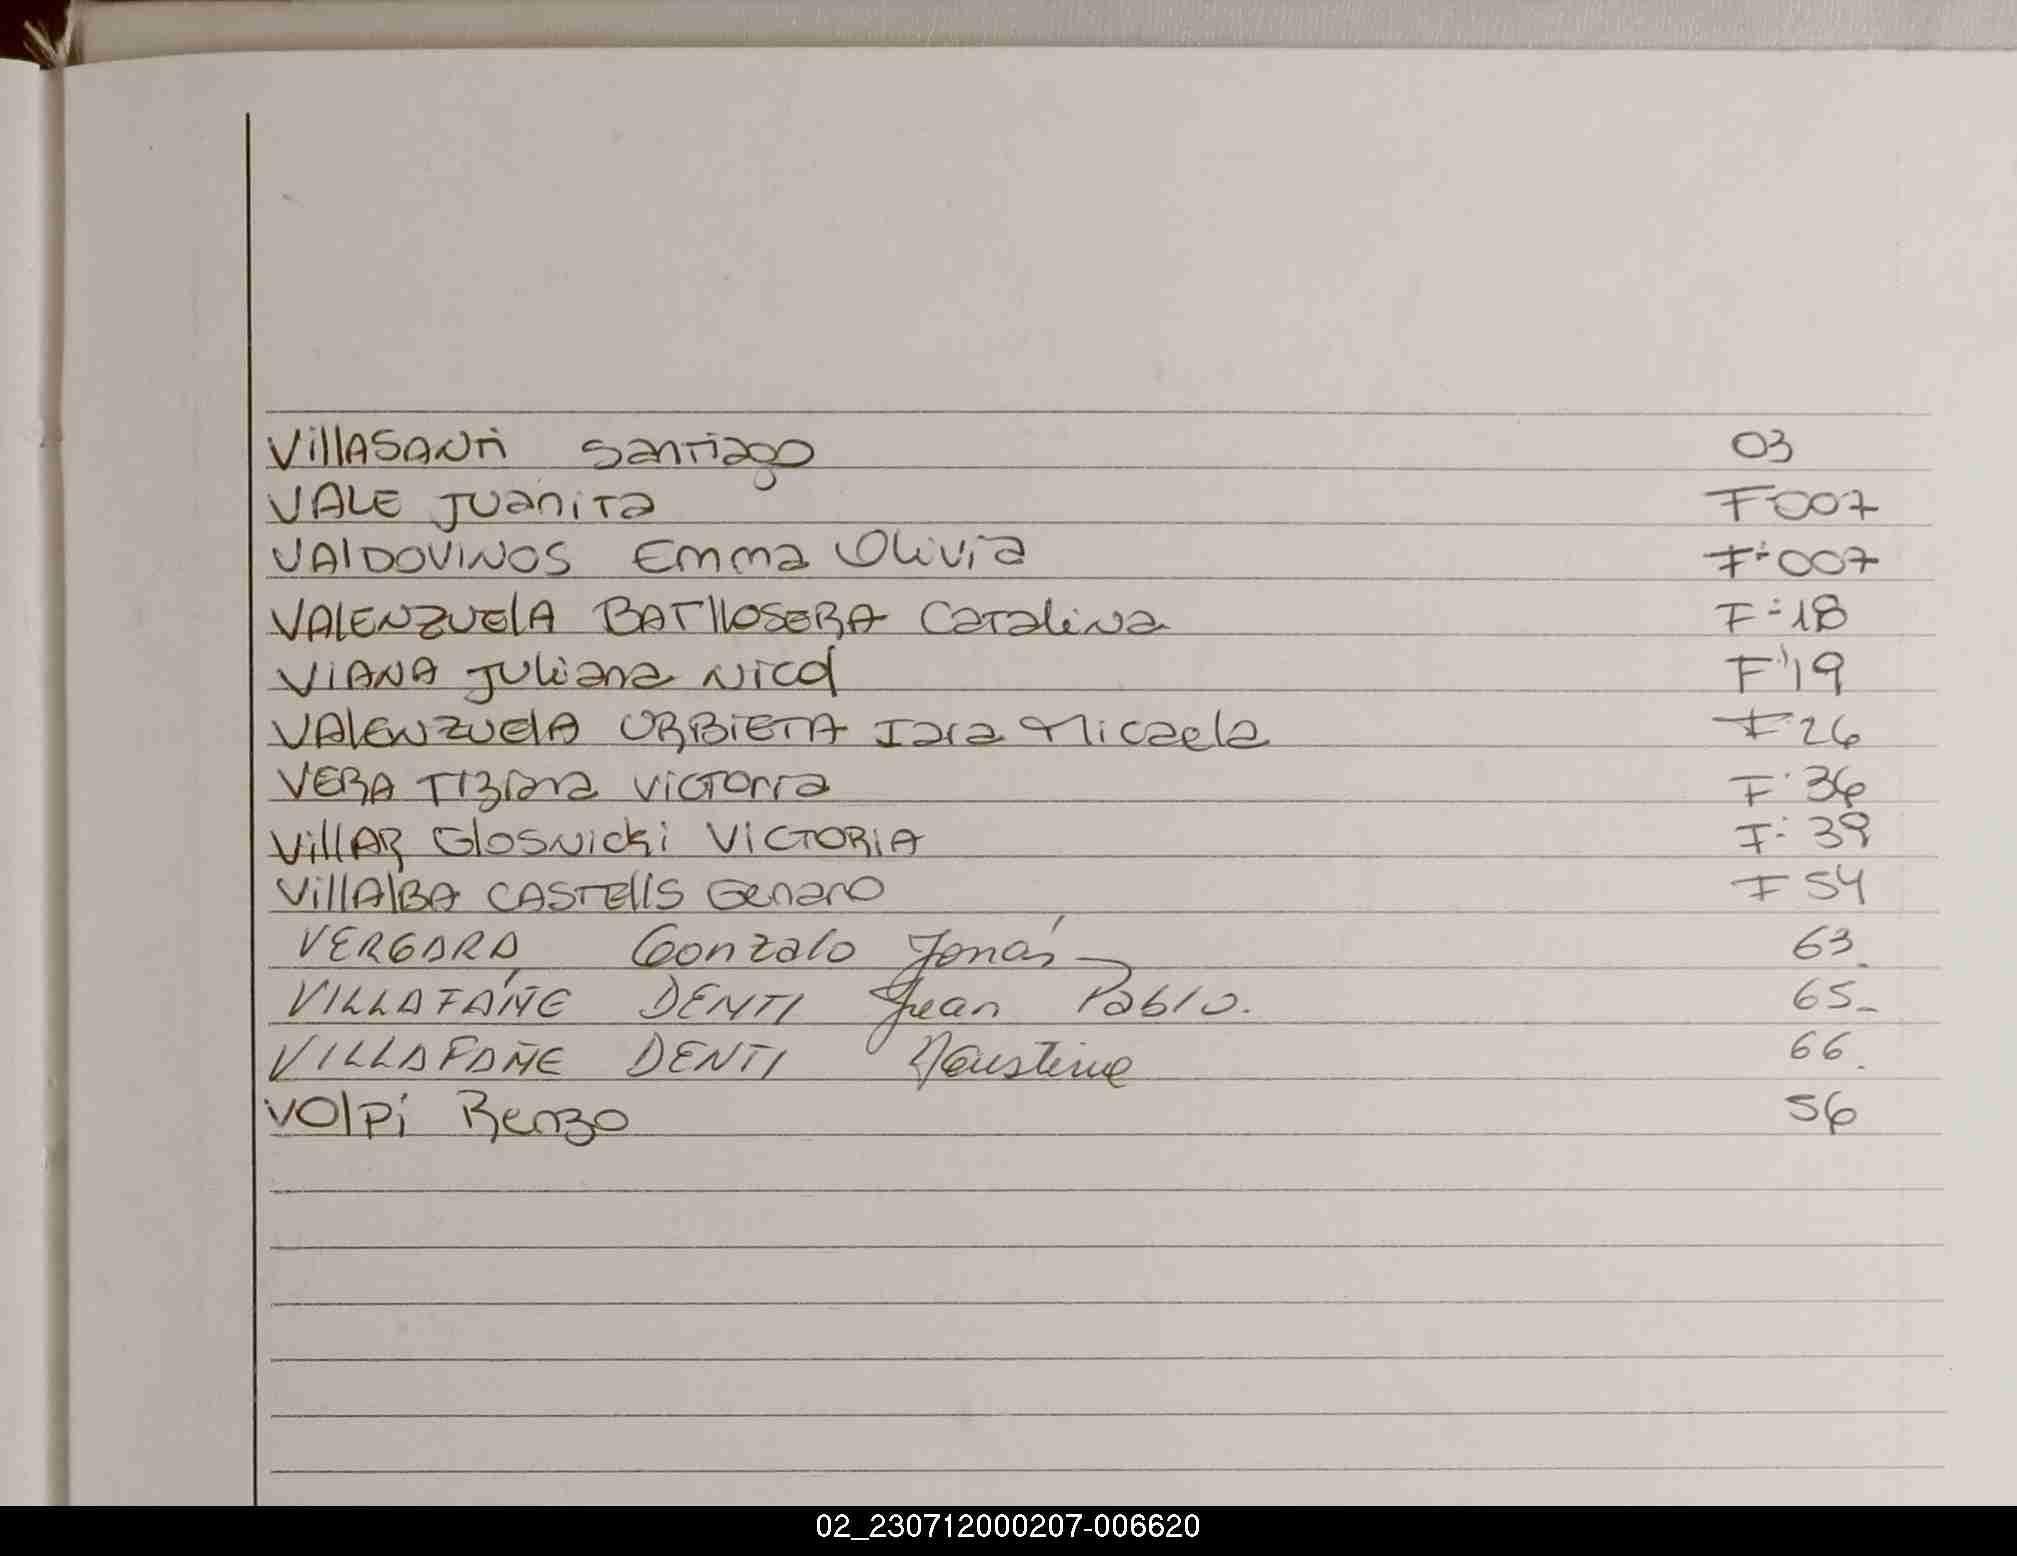 VillASANTi Santiago 03
VALE Juanita F 007
VAlDOVINOS Emma Olivia F: 007
VAlENZUElA BATllOSERA Catalina F: 18
VIANA Juliana Nicol F: 19
VAlENZUElA URBIETA Iara Micaela F 26
VERA Tiziana Victoria F: 36
VillAR Glosnicki VICTORIA F: 39
VillAlBA CASTEllS Genaro F 54
VERGARA Gonzalo Jonás 63.
VILLAFAÑE DENTI Juan Pablo. 65_
VILLAFAÑE DENTI Faustino 66.
VOlpi Renzo 56
02_230712000207-006620